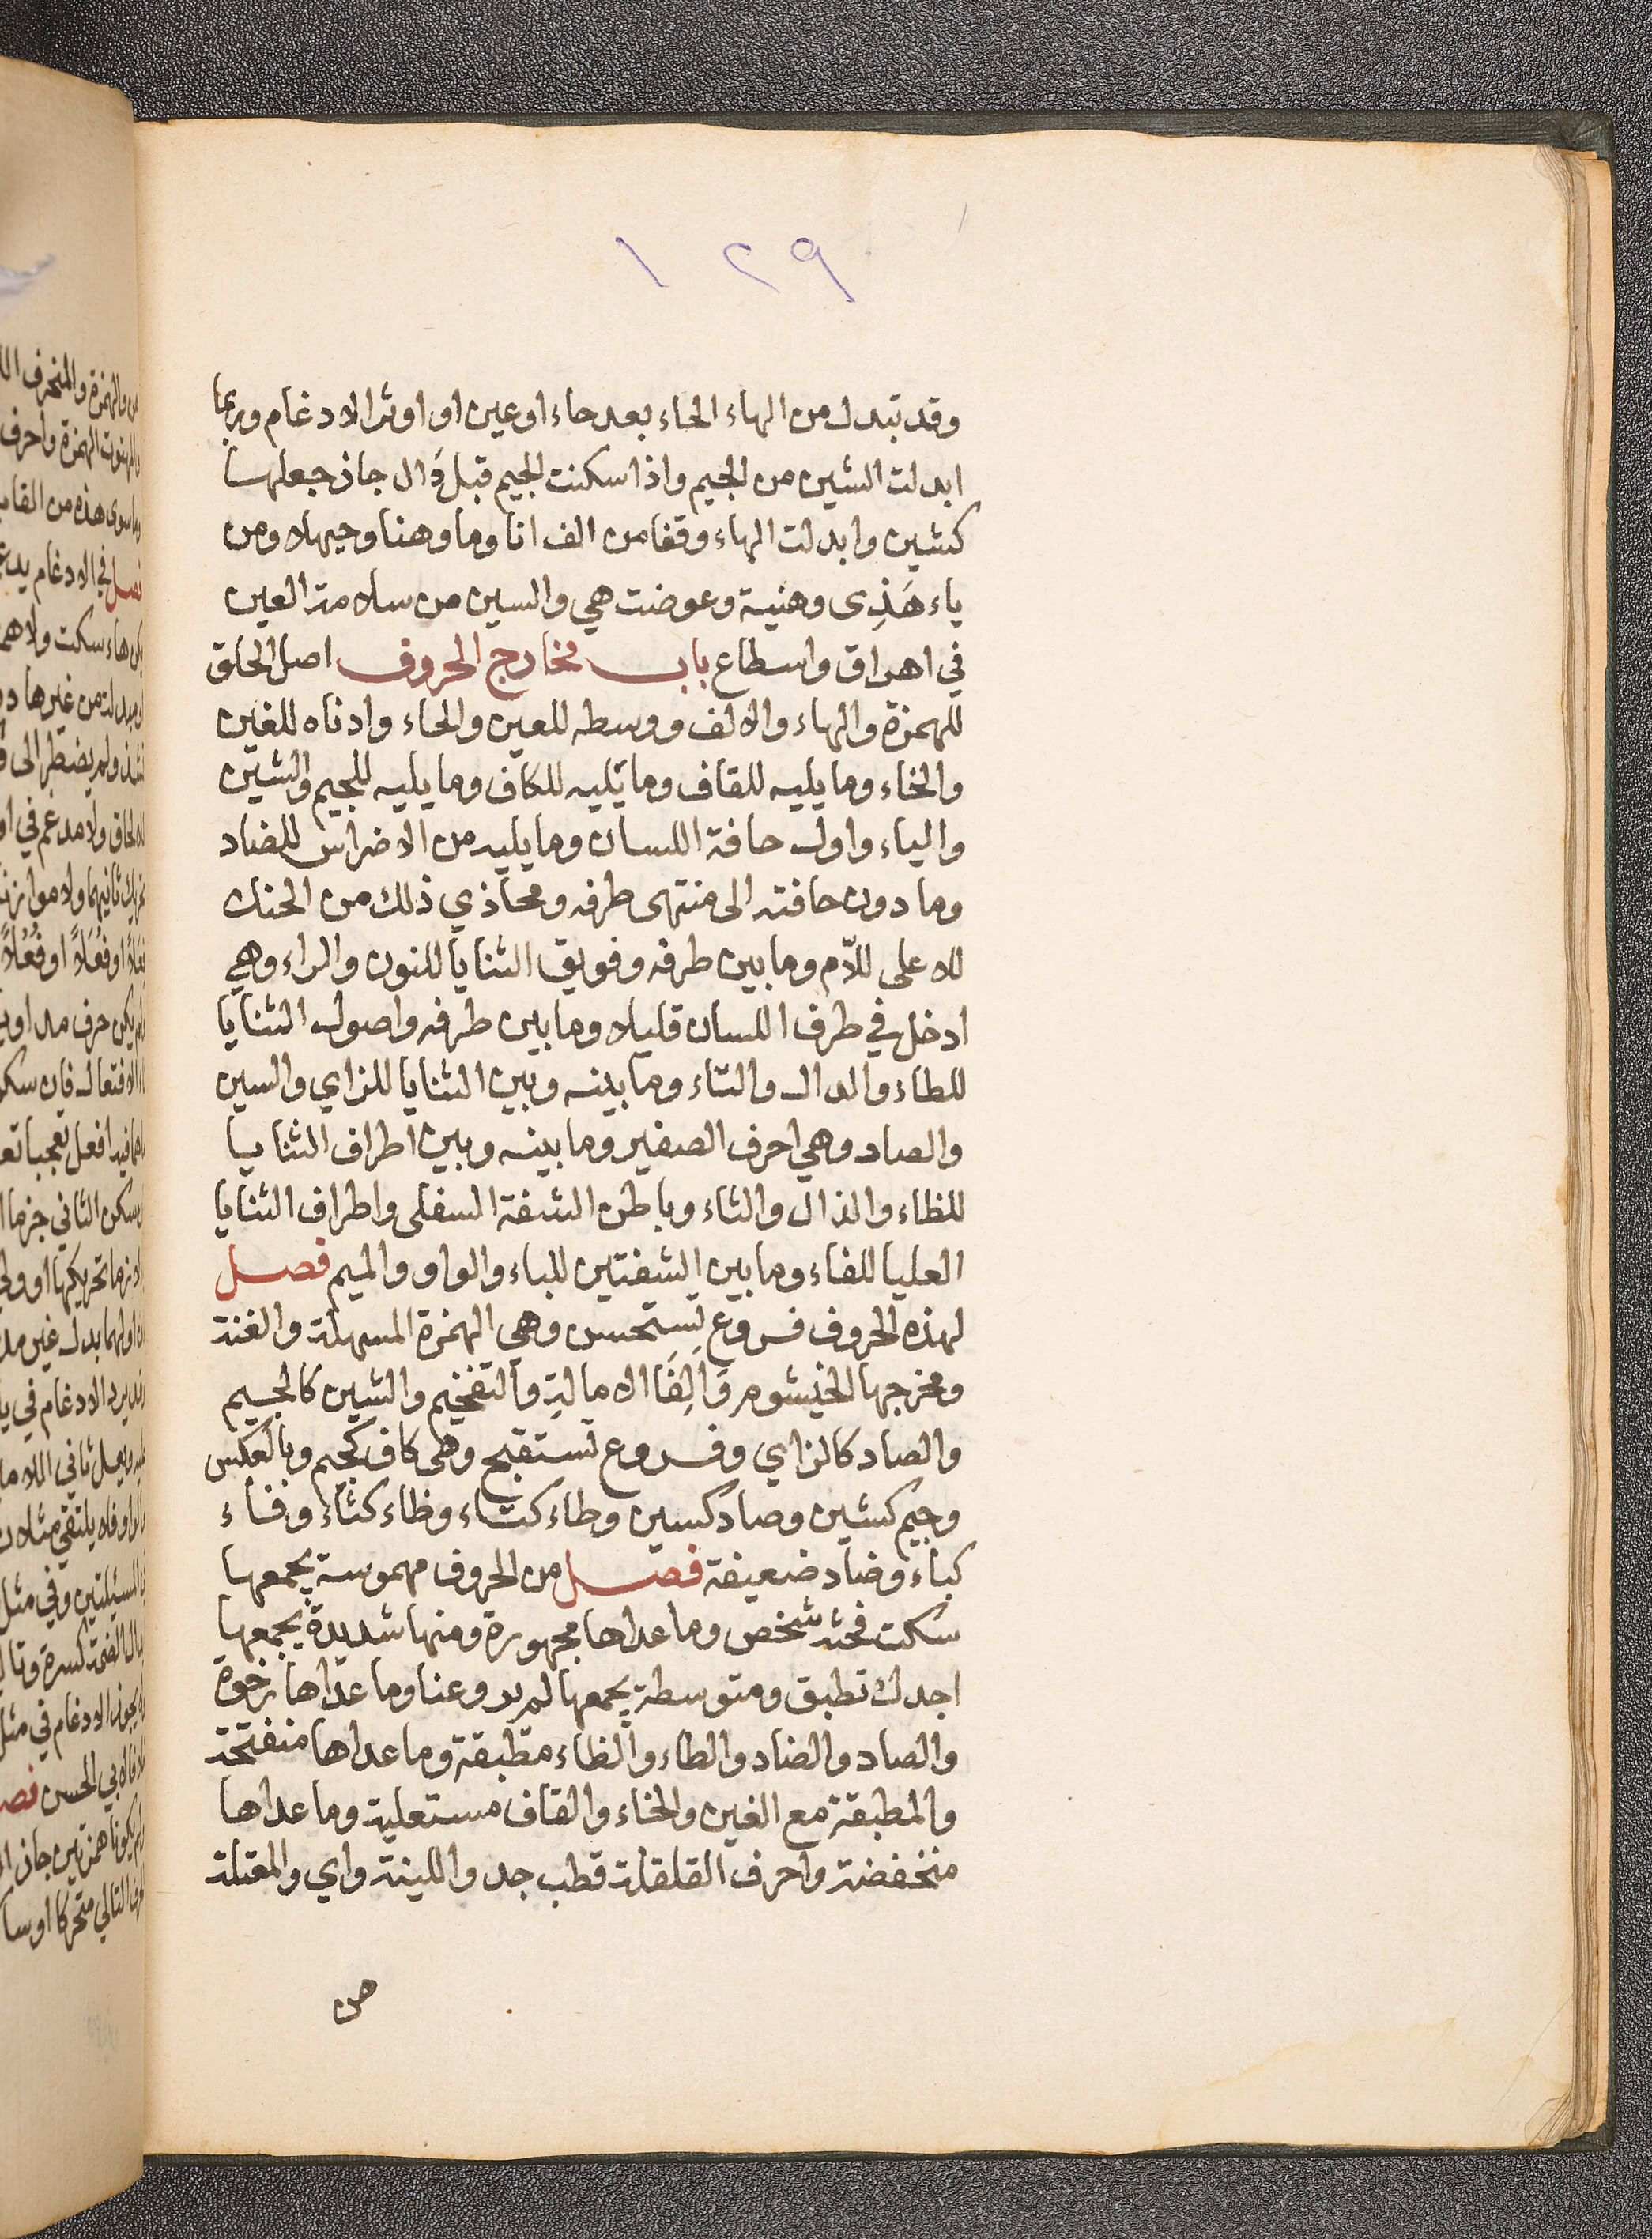 ١٢٩
وقد تبدل من الهاء الحاء بعد حاء او عين او اوثر الادغام وربما
ابدلت الشين من الجيم واذا سكنت الجيم قبل دَال جاز جعلها
كشين وابدلت الهاء وقفا من الف انا وما وهنا وحيهلا ومن
ياء هَذِى وهنية وعوضت هي والسين من سلامة العين
في اهراق واسطاع باب مخارج الحروف اصل الحلق
للهمزة والهاء والالف ووسطه للعين والحاء وادناه للغين
والخاء وما يليه للقاف وما يليه للكاف وما يليه للجيم والشين
والياء واول حافة اللسان وما يليه من الاضراس للضاد
وما دون حافته الى منتهى طرفه ومحاذي ذلك من الحنك
للاعلى للاّم وما بين طرفه وفويق الثنايا للنون والراء وهي
ادخل في طرف اللسان قليلا وما بين طرفه واصول الثنايا
للطاء والدال والتاء وما بينه وبين الثنايا للزاي والسين
والصاد وهي احرف الصفير وما بينه وبين اطراف الثنايا
للظاء والذال والثاء وباطن الشفة السفلى واطراف الثنايا
العليا للفاء وما بين الشفتين للباء والواو والميم فصل
لهذه الحروف فروع تستحسن وهي الهمزة المسهلة والغنة
ومخرجها الخيشوم وَالِفَا الامالةِ والتفخيم والشين كالجيم
والصاد كالزاي وفروع تستقبح وهى كاف كجيم وبالعكس
وجيم كشين وصاد كسين وطاء كتاء وظاء كثاء وفاء
كباء وضاد ضعيفة فصل من الحروف مهموسة يجمعها
سكت فحثه شخص وما عداها مجهورة ومنها شديدة يجمعها
اجدك تطبق ومتوسطة يجمعها لم يروعنا وما عداها رخوة
والصاد والضاد والطاء والظاء مطبقة وما عداها منفتحة
والمطبقة مع الغين والخاء والقاف مستعلية وما عداها
منخفضة واحرف القلقلة قطب جد واللينة واي والمعتلة
هن